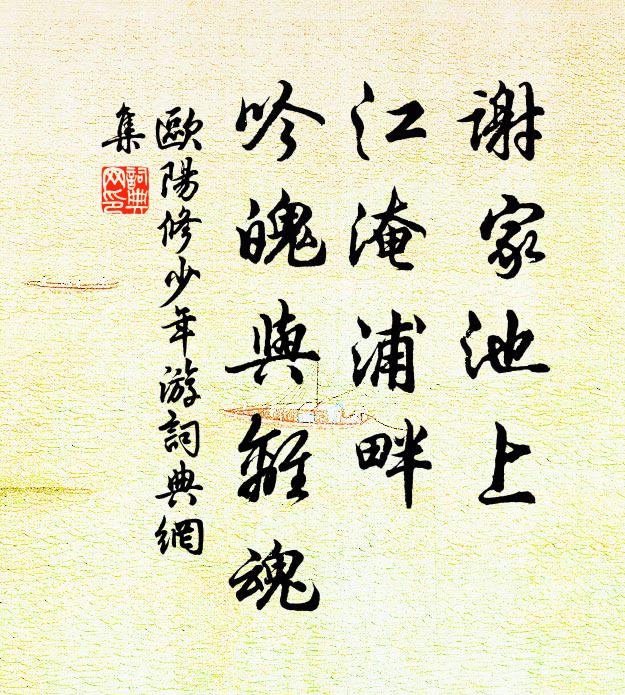 謝家池上
江淹浦畔
吟魄與離魂
歐陽修少年游詞典網
集
詞典
网印